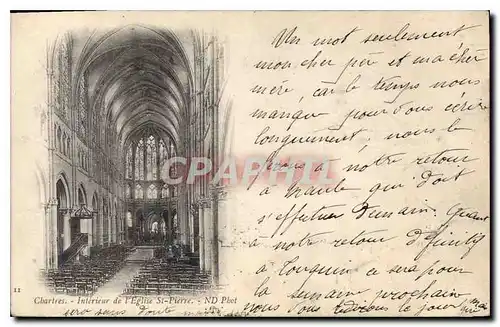 Un mot seulement
mon cher pèr et ma chèr
mèr, car le temps nous
manque pour vous écrire
longuement, nous le
ferons à notre retour
à qui doit
s'effectuer demain. Quant
à notre retour définitif
à ce sera pour
la semaine prochain
nous vous le jour
sera sans doute
11
Chartres. - Intérieur de l'Église St-Pierre. - ND Phot
CPARAMA